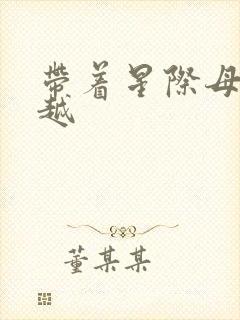 帶着星際母
越
董某某